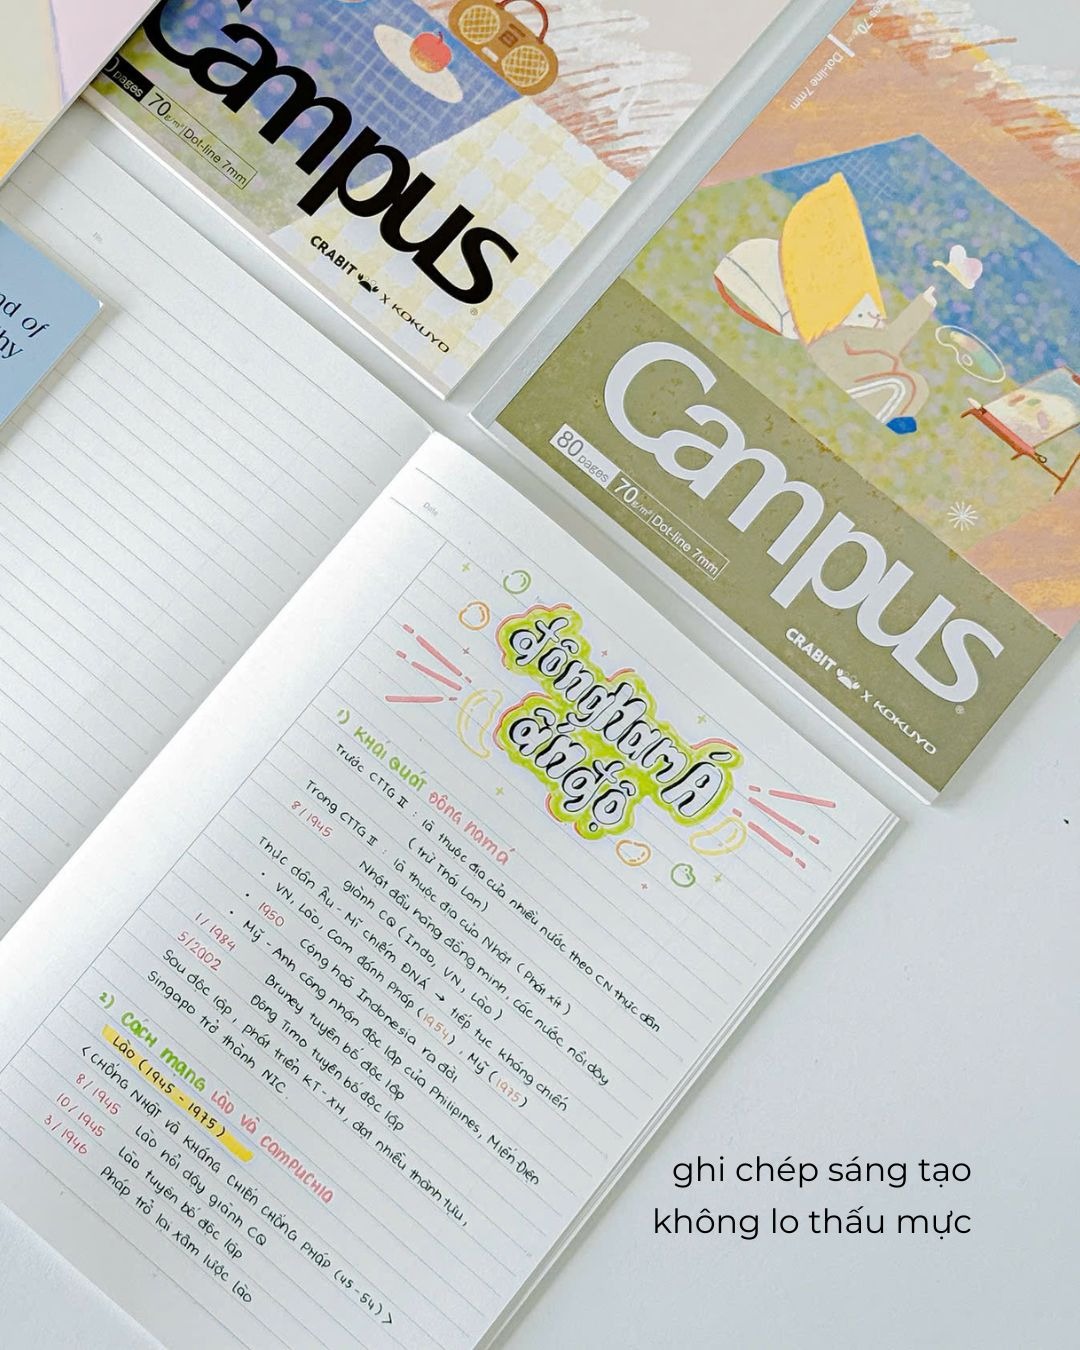 Campus
pages 70g/m² Dot-line 7mm
CRABIT x KOKUYO
70
Dot-line 7mm
Campus
80 pages 70g/m² Dot-line 7mm
CRABIT x KOKUYO
nd of
hy
No.
Date
đông Nam Á
ấn độ
1) KHÁI QUÁT ĐÔNG NAM Á
Trước CTTG II : là thuộc địa của nhiều nước theo CN thực dân
(trừ Thái Lan)
Trong CTTG II : là thuộc địa của Nhật (Phát xít)
8/1945 Nhật đầu hàng đồng minh, các nước nổi dậy
giành CQ (Indo, VN, Lào)
Thực dân Âu - Mĩ chiếm ĐNÁ → tiếp tục kháng chiến
• VN, Lào, Cam đánh Pháp (1954), Mỹ (1975)
• 1950 Cộng hoà Indonesia ra đời
• Mỹ - Anh công nhận độc lập của Philipines, Miến Điện
1/1984 Bruney tuyên bố độc lập
5/2002 Đông Timo tuyên bố độc lập
Sau độc lập, phát triển KT - XH, đạt nhiều thành tựu,
Singapo trở thành NIC.
2) CÁCH MẠNG LÀO VÀ CAMPUCHIA
Lào (1945 - 1975)
< CHỐNG NHẬT VÀ KHÁNG CHIẾN CHỐNG PHÁP (45-54) >
8/1945 Lào nổi dậy giành CQ
10/1945 Lào tuyên bố độc lập
3/1946 Pháp trở lại xâm lược Lào
ghi chép sáng tạo
không lo thấu mực